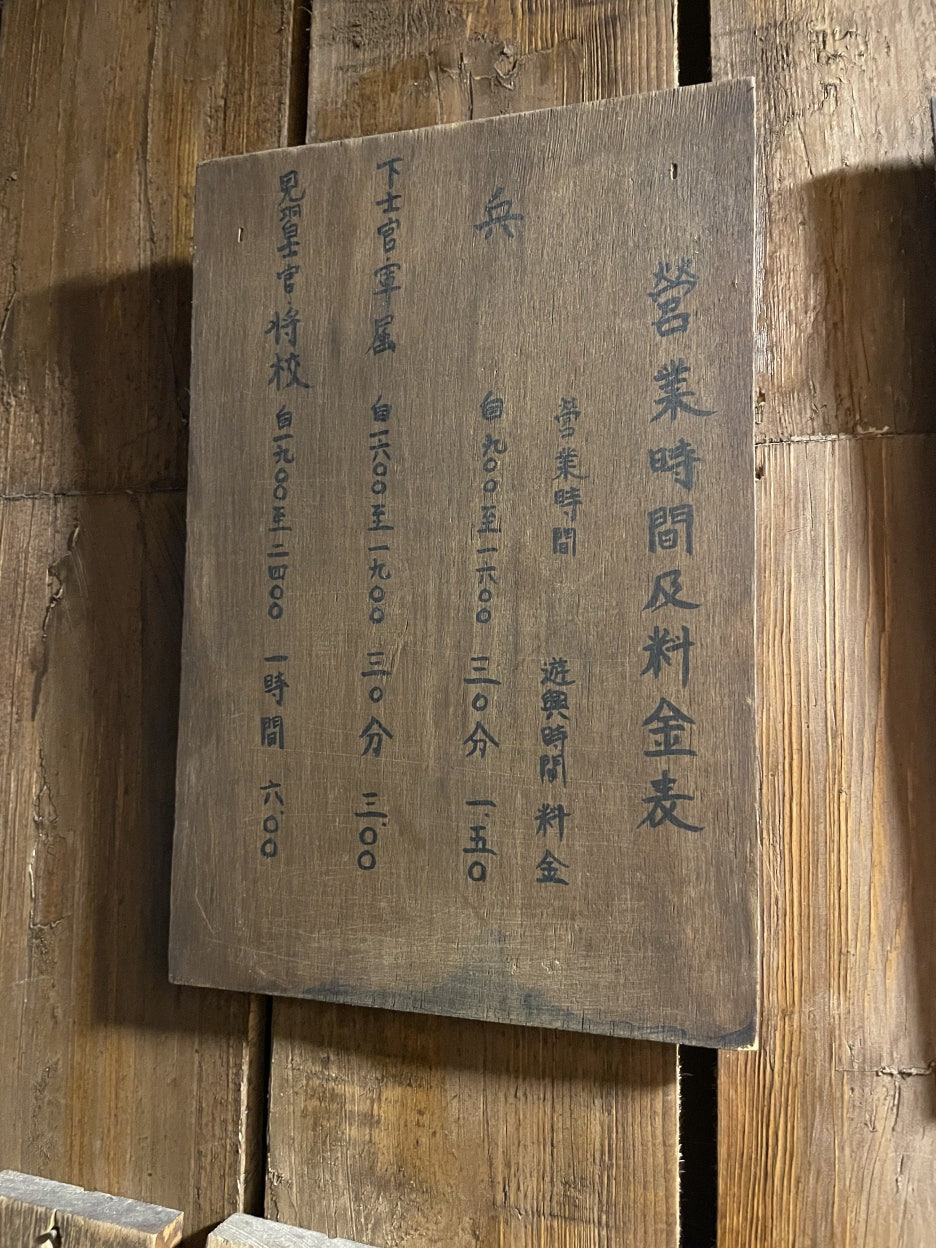 營業時間及料金表
營業時間 遊興時間 料金
兵 自 九〇〇至一六〇〇 三〇分 一.五〇
下士官.軍属 自一六〇〇至一九〇〇 三〇分 三.〇〇
見習士官.将校 自一九〇〇至二四〇〇 一時間 六.〇〇